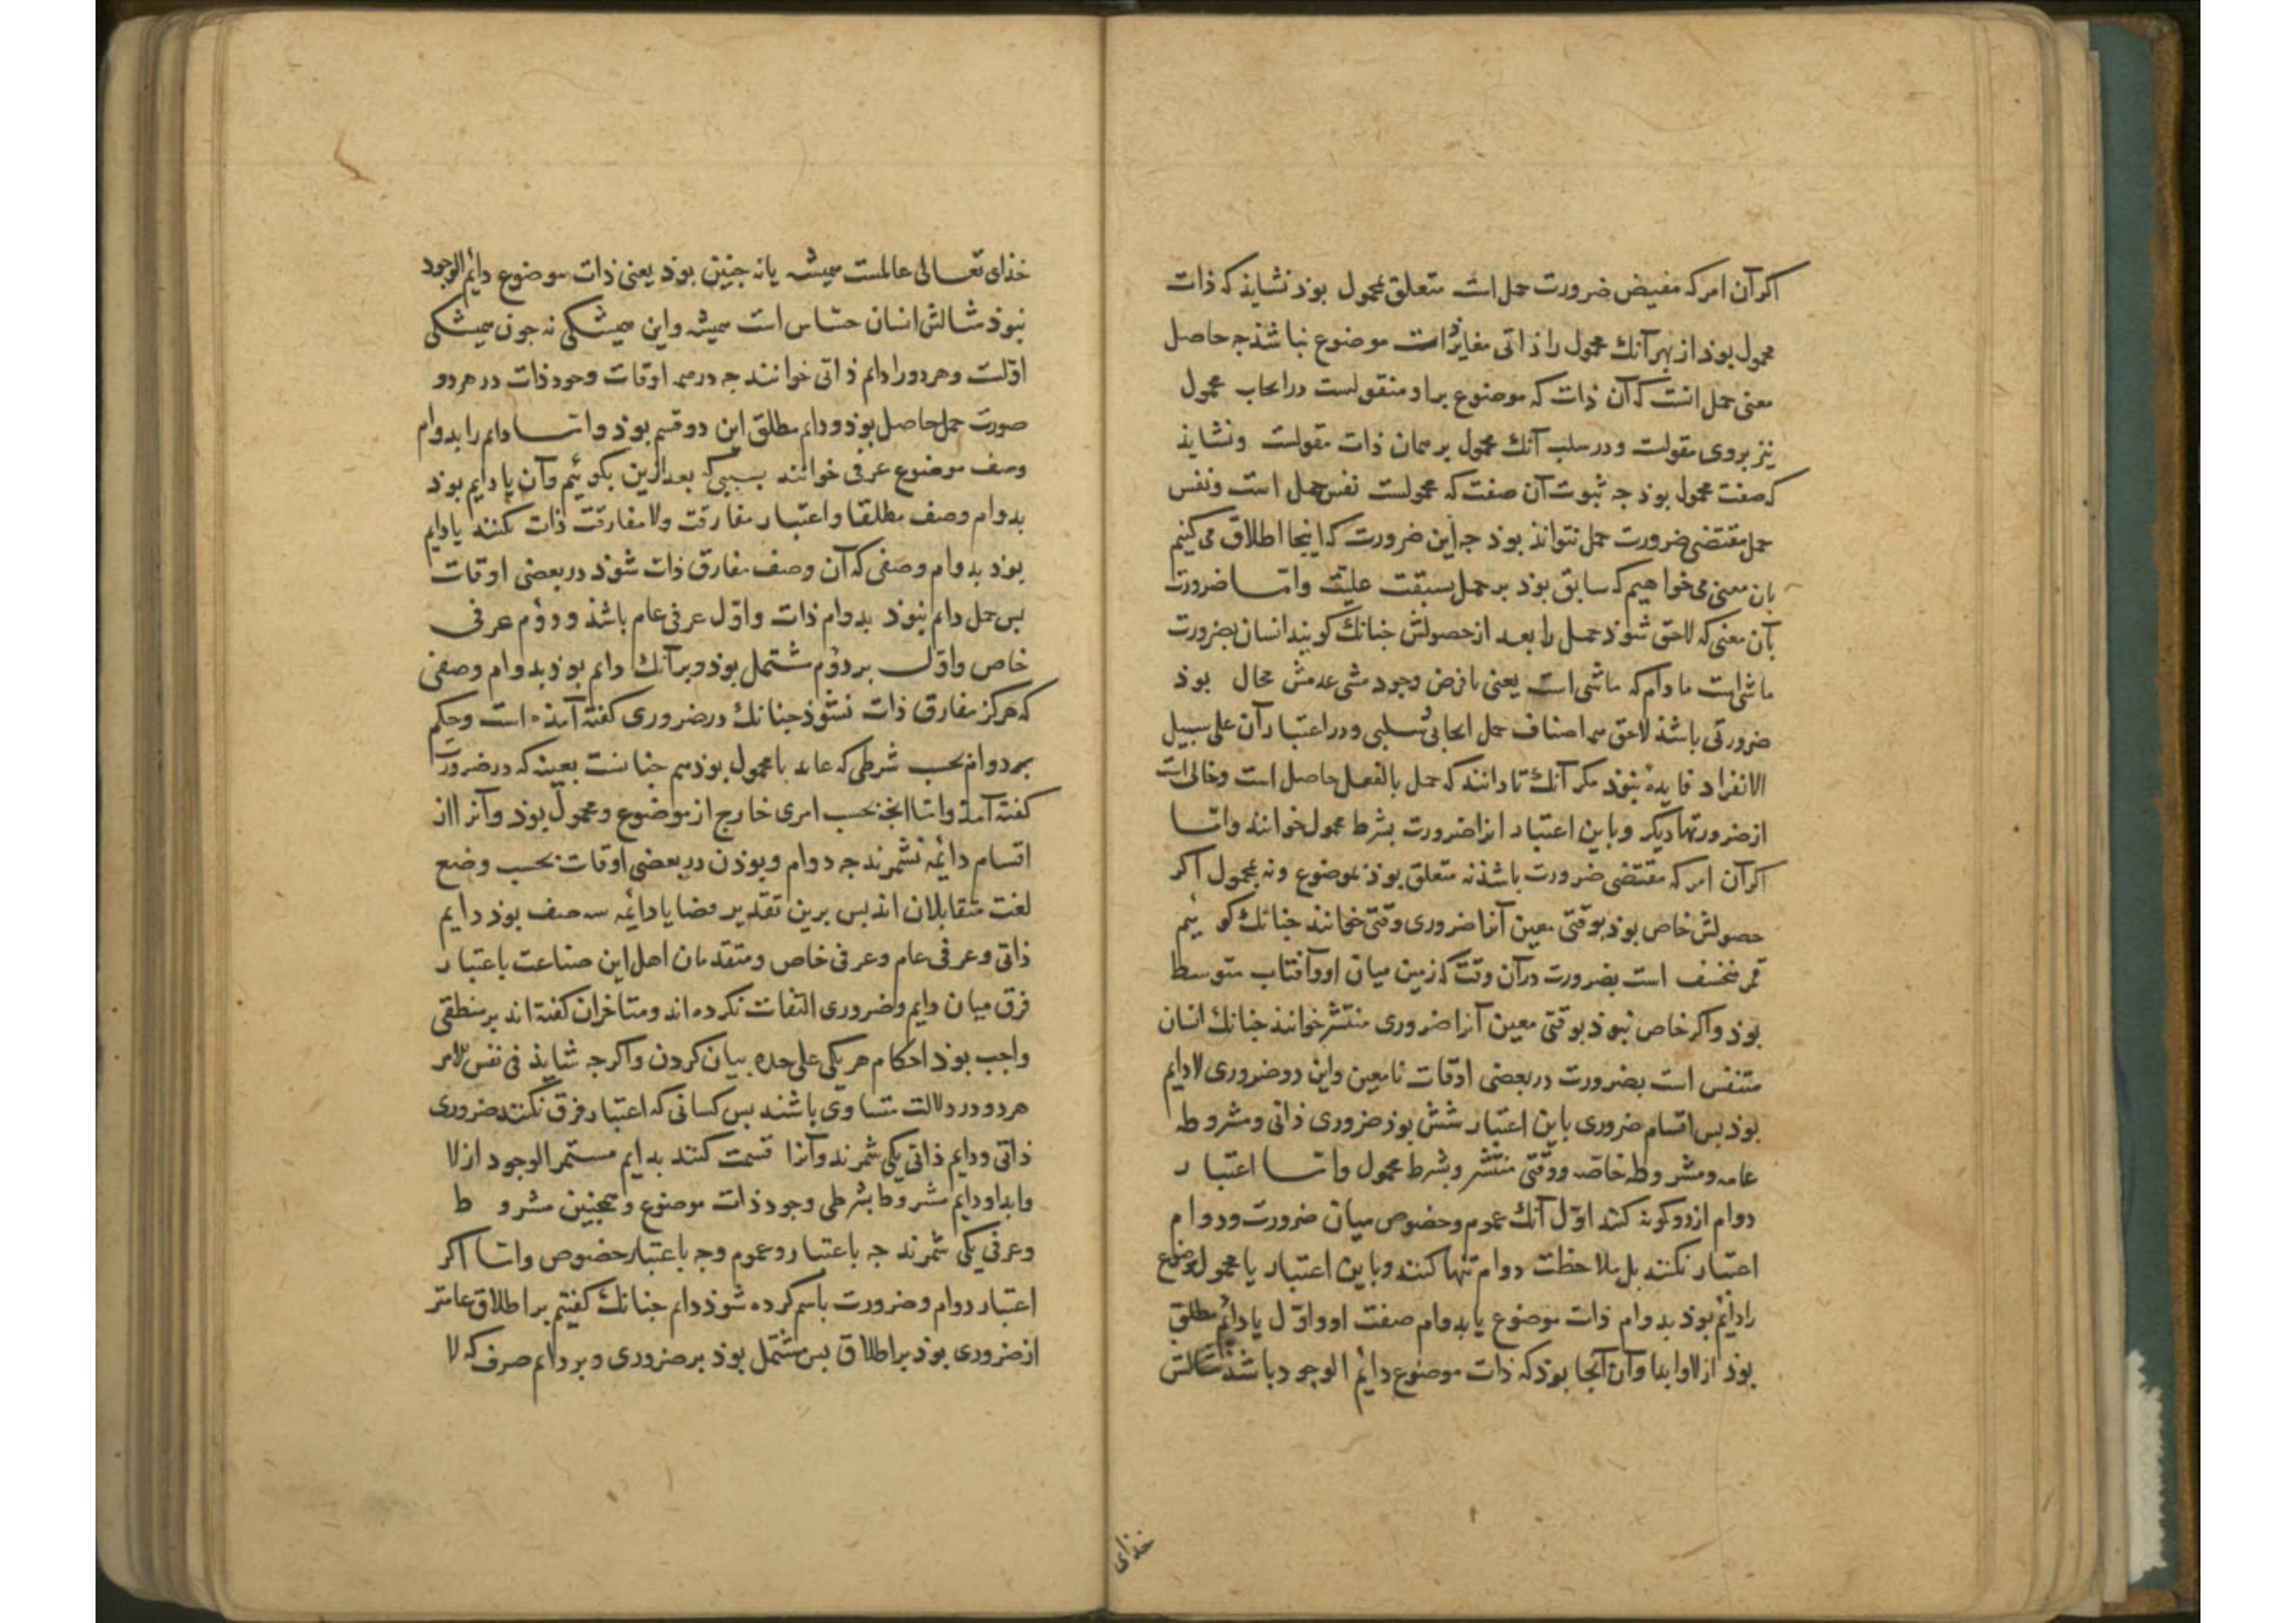 اکر آن امر که مفیض ضرورت حمل است متعلق بمحمول بوذ نشایذ که ذات
محمول بوذ از بهر آنك محمول را ذاتی مغایر ذات موضوع نباشذ جه حاصل
معنی حمل انست که آن ذات که موضوع براو مقولست در ایجاب محمول
نیز بروی مقولست و در سلب آنك محمول بر همان ذات مقولست ونشایذ
که صفت محمول بوذ جه ثبوت آن صفت که محمولست نفس حمل است ونفس
حمل مقتضی ضرورت حمل نتواند بوذ جه این ضرورت که اینجا اطلاق می کنیم
بان معنی می خواهیم که سابق بوذ بر حمل بسبقت علیت واما ضرورت
بآن معنی که لاحق شوذ حمل را بعد از حصولش جنانك کویند انسان بضرورت
ماشی است مادام که ماشی است یعنی با فرض وجود مشی عدمش محال بوذ
ضرورتی باشذ لاحق همه اصناف حمل ایجابی وسلبی ودر اعتبار آن علی سبیل
الانفراد فایدۀ نبوذ مکر آنك تا دانند که حمل بالفعل حاصل است وخالی است
از ضرورتها دیکر وباین اعتبار انرا ضرورت بشرط محمول خوانند واما
اکر آن امر که مقتضی ضرورت باشذ نه متعلق بوذ بموضوع ونه بمحمول اکر
حصولش خاص بوذ بوقتی معین آنرا ضروری وقتی خوانند جنانك کوئیم
قمر منخسف است بضرورت در آن وقت که زمین میان او وآفتاب متوسط
بوذ واکر خاص نبوذ بوقتی معین آنرا ضروری منتشر خوانند جنانك انسان
متنفس است بضرورت در بعضی اوقات نامعین واین دو ضروری لادایم
بوذ بس اقسام ضروری باین اعتبار شش بوذ ضروری ذاتی ومشروطه
عامه ومشروطه خاصه ووقتی ومنتشر وبشرط محمول واما اعتبار
دوام از دو کونه کنند اول آنك عموم وخصوص میان ضرورت ودوام
اعتبار نکنند بل ملاحظت دوام تنها کنند وباین اعتبار یا محمول موضوع
را دائم بوذ بدوام ذات موضوع یا بدوام صفت او واول یا دائم مطلق
بوذ ازلا وابدا وآن آنجا بوذ که ذات موضوع دائم الوجود باشذ مثالش
خذای
خذای تعالی عالمست همیشه یا نه جنین بوذ یعنی ذات موضوع دایم الوجود
نبوذ مثالش انسان حساس است همیشه واین همیشکی نه جون همیشکی
اولست وهر دو را دایم ذاتی خوانند جه در همه اوقات وجود ذات در هر دو
صورت حمل حاصل بوذ ودایم مطلق این دو قسم بوذ واما دایم را بدوام
وصف موضوع عرفی خوانند بسببی که بعد ازین بکوئیم وآن یا دایم بوذ
بدوام وصف مطلقا واعتبار مفارقت ولا مفارقت ذات نکنند یا دایم
بوذ بدوام وصفی که آن وصف مفارق ذات شوذ در بعضی اوقات
بس حمل دایم نبوذ بدوام ذات واول عرفی عام باشذ ودوم عرفی
خاص واول بر دوم مشتمل بوذ وبر آنك دایم بوذ بدوام وصفی
که هرکز مفارق ذات نشوذ جنانك در ضروری کفته آمذه است وحکم
بر دوام بحسب شرطی که عاید با محمول بوذ هم جنانست بعینه که در ضرورت
کفته آمذ واما آنچه بحسب امری خارج از موضوع ومحمول بوذ وآنرا از
اقسام دائمه نشمرند جه دوام وبوذن در بعضی اوقات بحسب وضع
لغت متقابلان اند بس برین تقدیر قضایا دائمه سه صنف بوذ دایم
ذاتی وعرفی عام وعرفی خاص ومتقدمان اهل این صناعت باعتبار
فرق میان دایم وضروری التفات نکرده اند ومتاخران کفته اند بر منطقی
واجب بوذ احکام هر یکی علی حده بیان کردن واکرجه شایذ فی نفس الامر
هر دو در دلالت متساوی باشند بس کسانی که اعتبار فرق نکنند ضروری
ذاتی ودایم ذاتی یکی شمرند وآنرا قسمت کنند بدایم مستمر الوجود ازلا
وابدا ودایم مشروط بشرطی وجود ذات موضوع وهمجنین مشروط
وعرفی یکی شمرند جه باعتبار وعموم وجه باعتبار خصوص واما اکر
اعتبار دوام وضرورت باسم کرده شوذ دایم جنانك کفتیم بر اطلاق عامتر
از ضروری بوذ بر اطلاق بس مشتمل بوذ بر ضروری وبر دایم صرف که لا